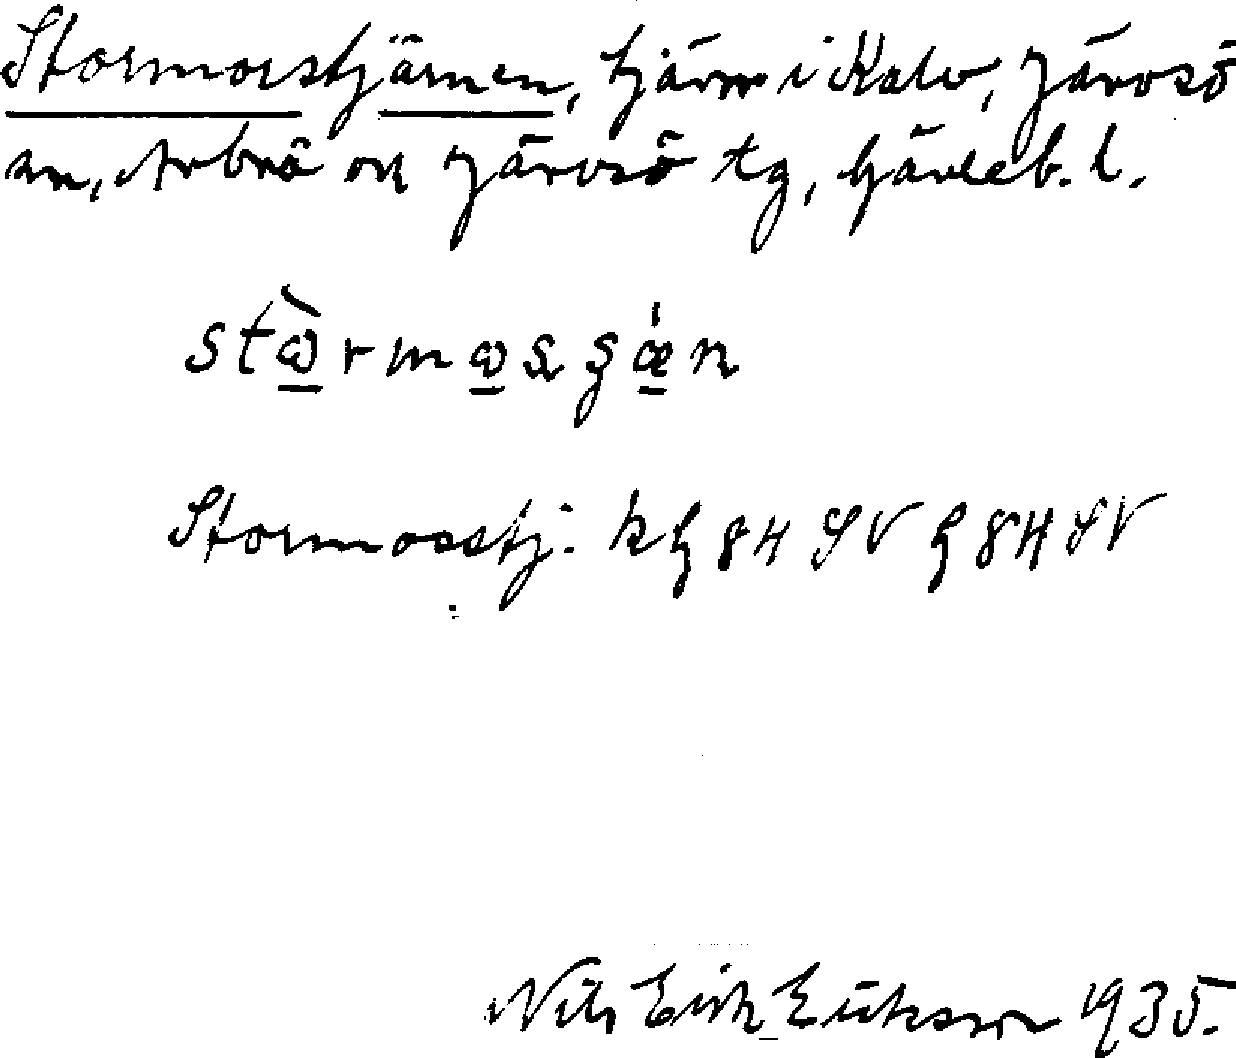 Stormorstjärnen, tjärn i Kalv, Järvsö
sn, Arbrå och Järvsö tg, Gävleb. l.
Stormosstj. kg 84 SV g 84 SV
Nils Erik Eriksson 1935.